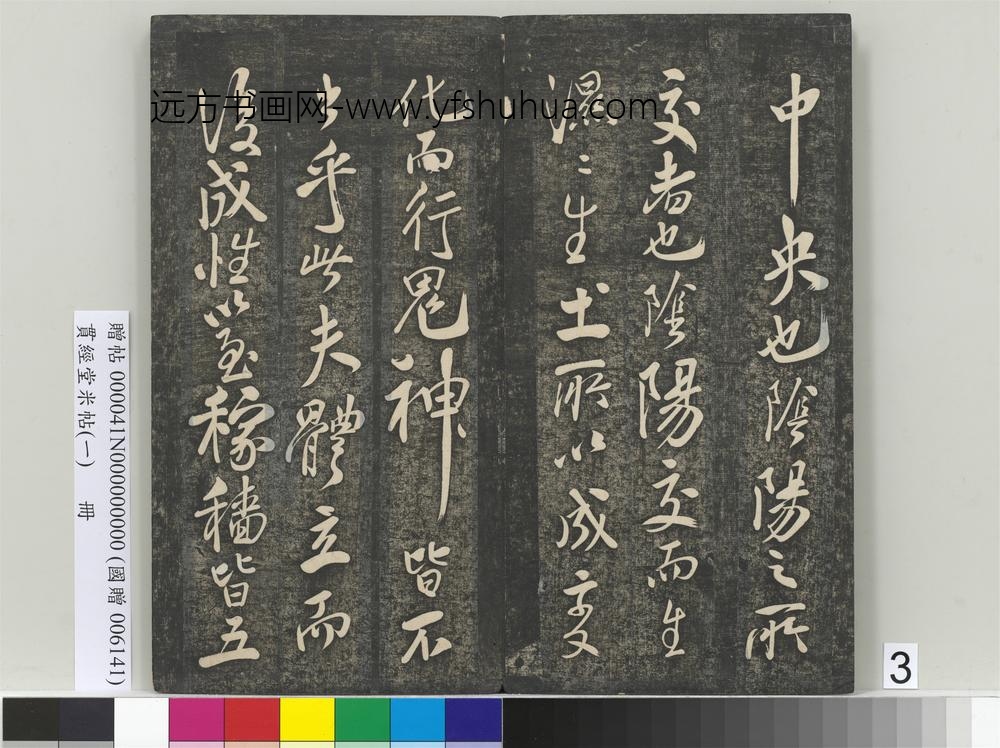 中央也陰陽之所
交者也陰陽交而生
濕〻生土所以成變
化而行鬼神皆不
出乎此夫體立而
後成性以至稼穡皆五
远方书画网-www.yfshuhua.com
贈帖 000041N000000000 (國贈 006141)
貫經堂米帖(一) 冊
3